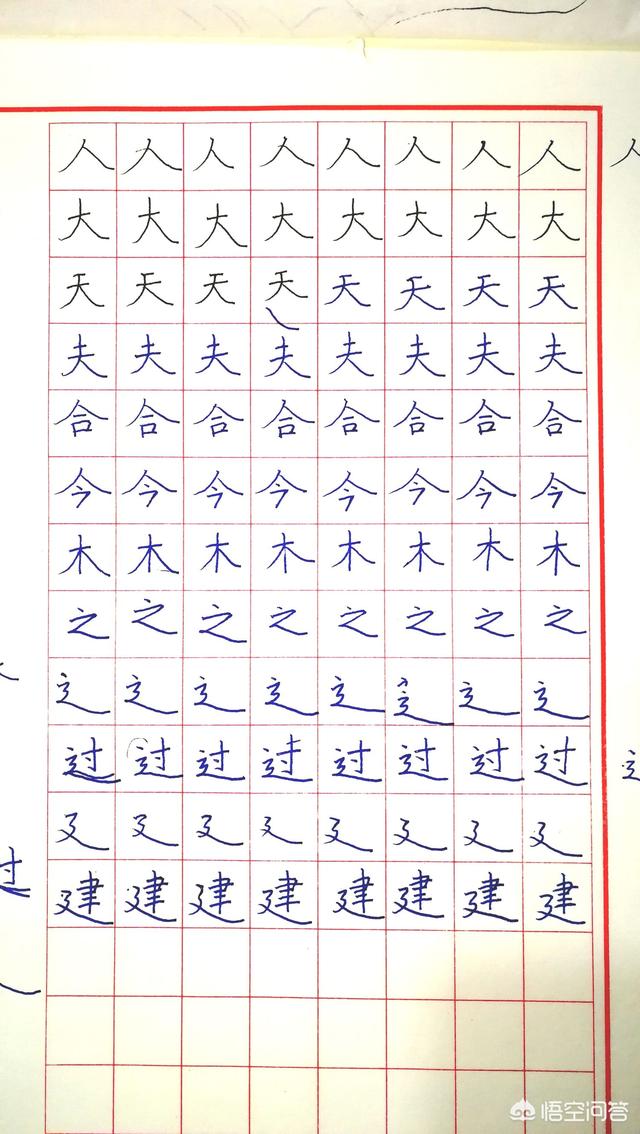 人人人人人人人人
大大大大大大大大
天天天天天天天天
夫夫夫夫夫夫夫夫
合合合合合合合合
今今今今今今今今
木木木木木木木木
之之之之之之之之
辶辶辶辶辶辶辶辶
过过过过过过过过
廴廴廴廴廴廴廴廴
建建建建建建建建
过
悟空问答